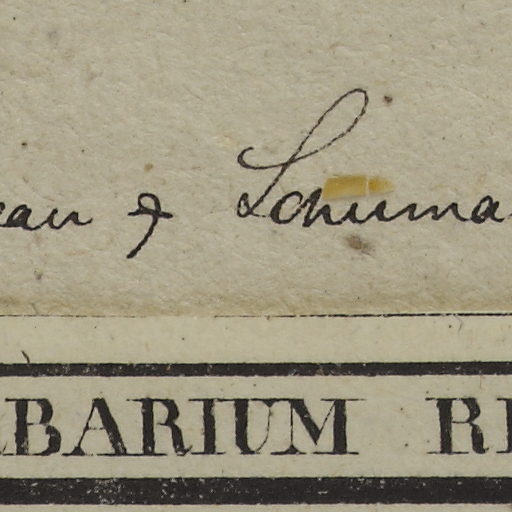 eau & Schuma
BARIUM RE